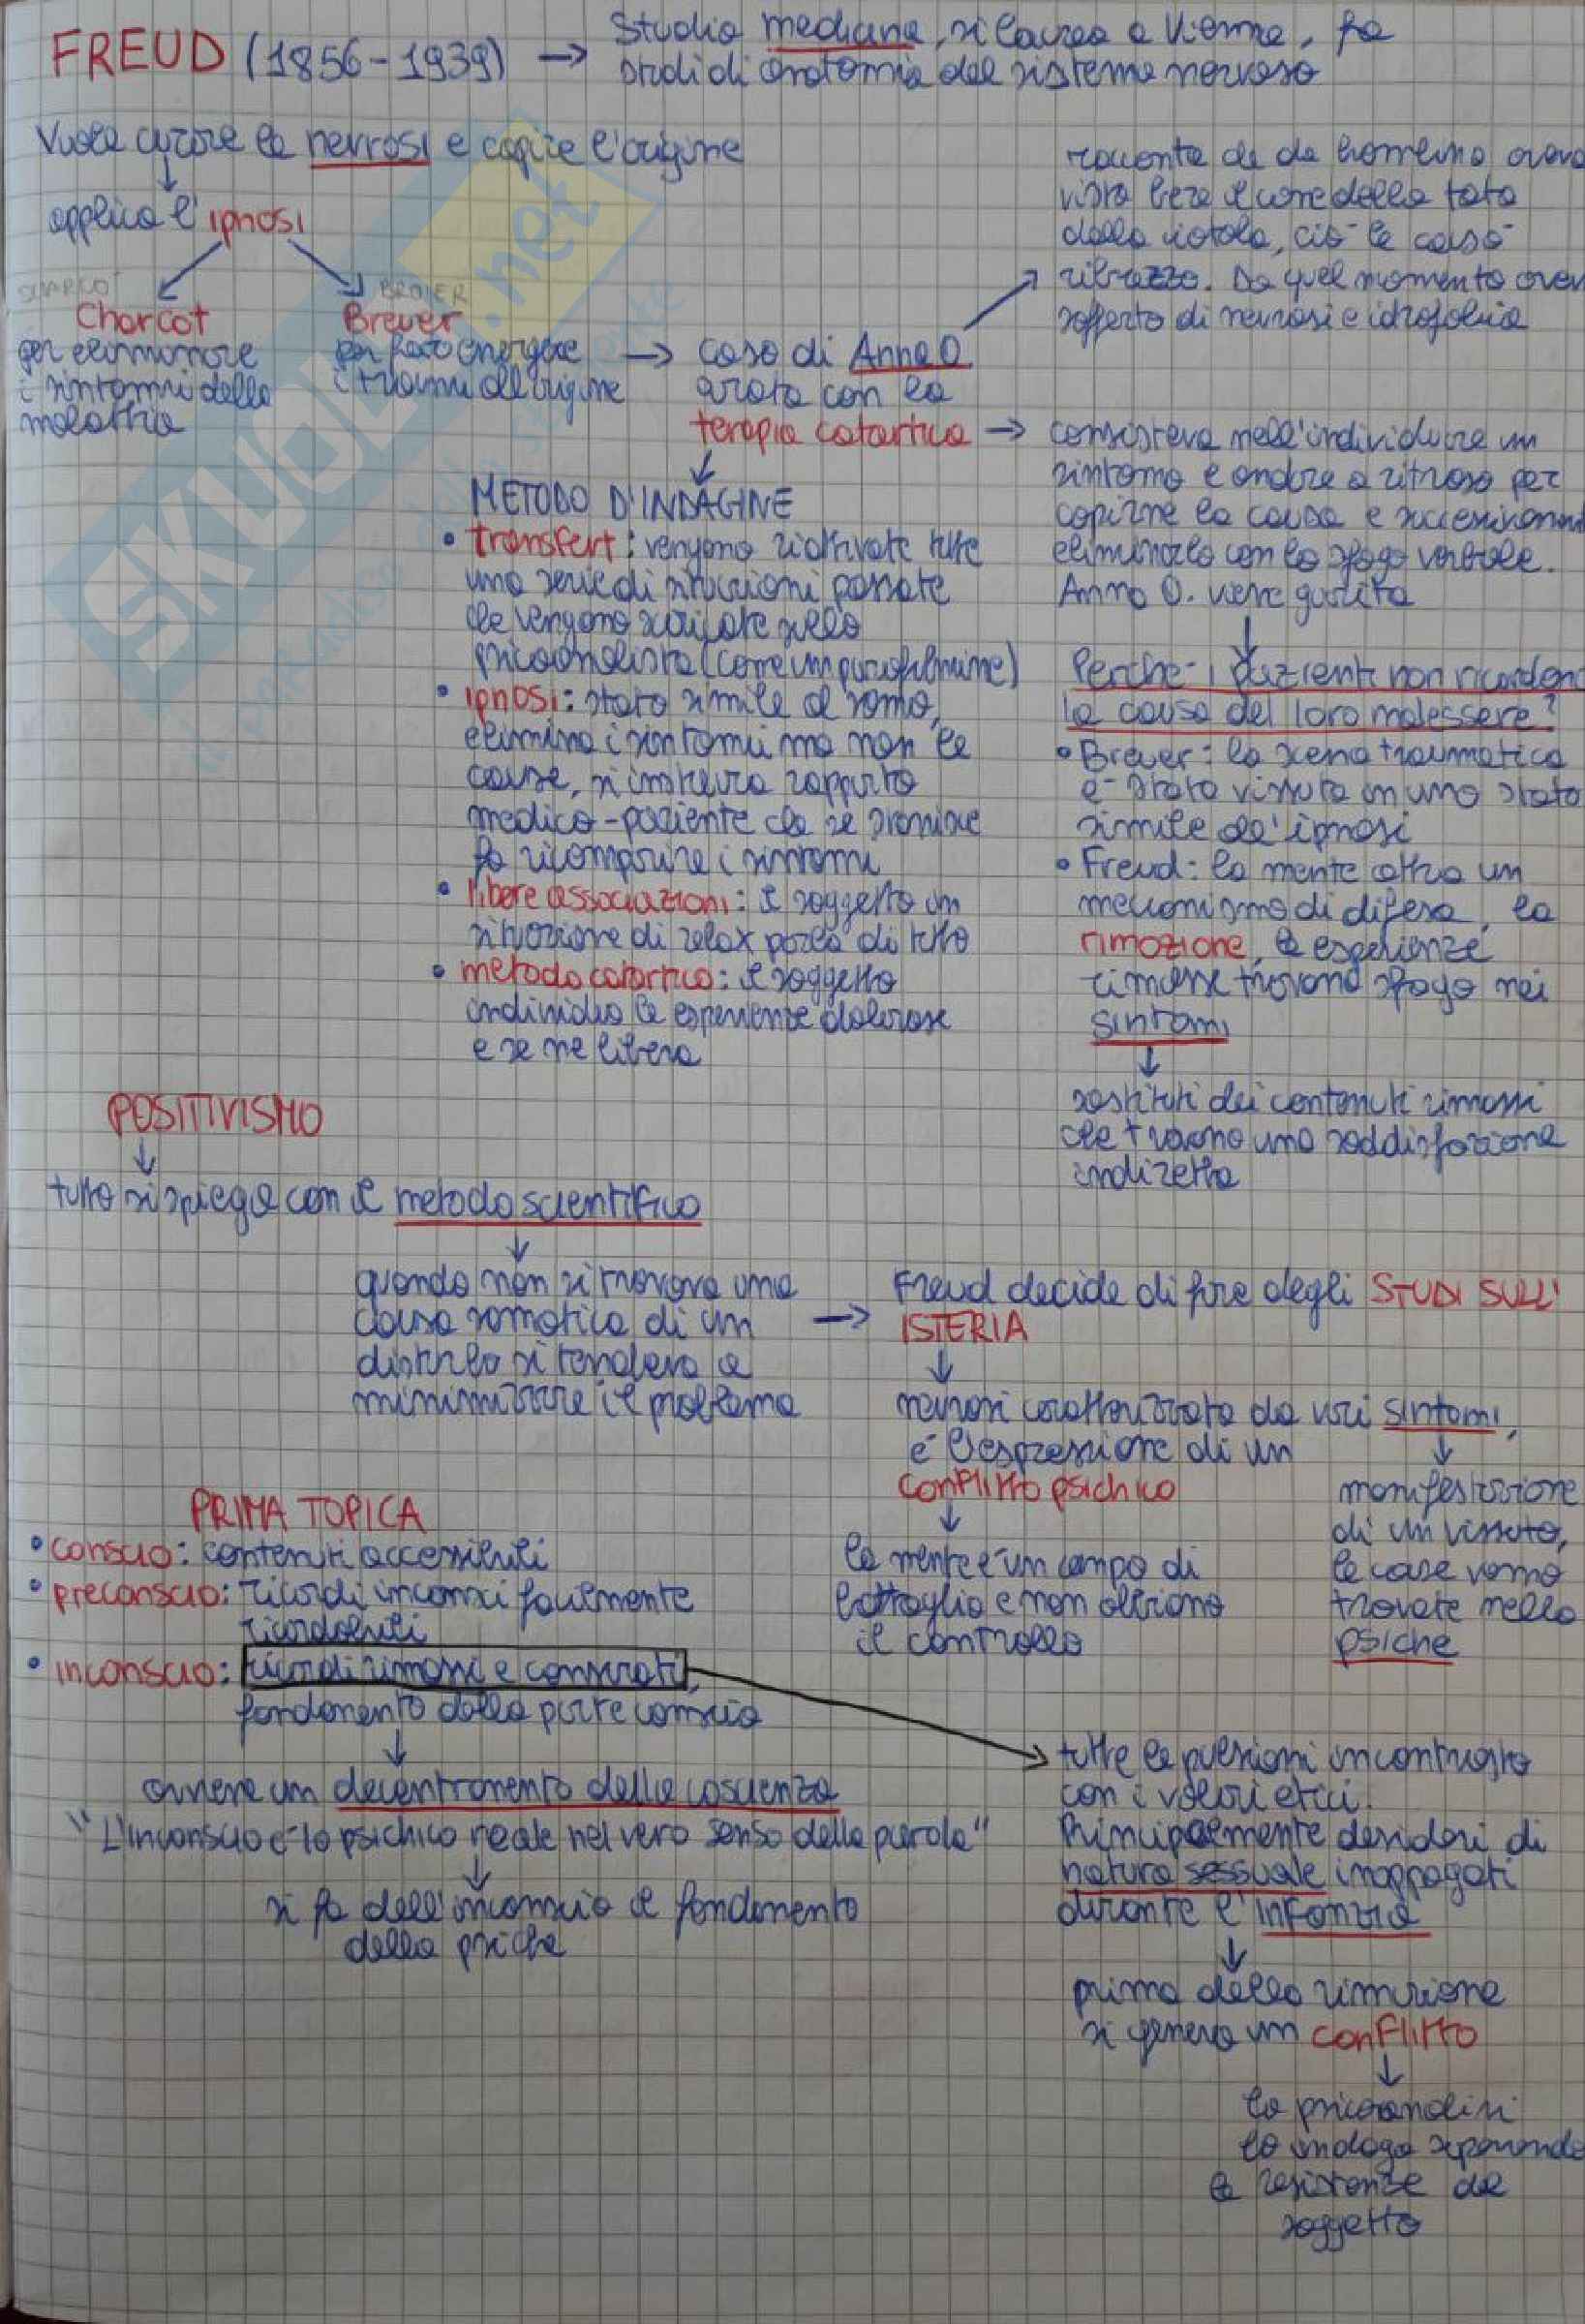 FREUD (1856-1939) → Studia medicina, si laurea a Vienna, fa
studi di anatomia del sistema nervoso
Vuole curare la nevrosi e capire l'origine
↓
applica l'ipnosi
SCIARCÒ
Charcot
per eliminare
i sintomi della
malattia
BROIER
Breuer
per fare emergere
i traumi all'origine
→ caso di Anna O.
curata con la
terapia catartica
racconta che da bambina aveva
visto bere il cane della tata
dalla ciotola, ciò le causò
ribrezzo. Da quel momento aveva
sofferto di nevrosi e idrofobia
→ consisteva nell'individuare un
sintomo e andare a ritroso per
capirne la causa e successivamente
eliminarlo con lo sfogo verbale.
Anna O. viene guarita
↓
Perché i pazienti non ricordano
la causa del loro malessere?
• Breuer: la scena traumatica
è stata vissuta in uno stato
simile all'ipnosi
• Freud: la mente attua un
meccanismo di difesa, la
rimozione, le esperienze
rimosse trovano sfogo nei
sintomi
↓
sostituti dei contenuti rimossi
che trovano una soddisfazione
indiretta
↓
METODO D'INDAGINE
• transfert: vengono riattivate tutte
una serie di situazioni passate
che vengono scaricate sullo
psicoanalista (come un parafulmine)
• ipnosi: stato simile al sonno,
elimina i sintomi ma non le
cause, si instaura rapporto
medico-paziente che se svanisce
fa ricomparire i sintomi
• libere associazioni: il soggetto in
situazione di relax parla di tutto
• metodo catartico: il soggetto
individua le esperienze dolorose
e se ne libera
POSITIVISMO
↓
tutto si spiega con il metodo scientifico
↓
quando non si trovava una
causa somatica di un
disturbo si tendeva a
minimizzare il problema
→ Freud decide di fare degli STUDI SULL'
ISTERIA
↓
nevrosi caratterizzata da vari sintomi,
è l'espressione di un
conflitto psichico
↓
la mente è un campo di
battaglia e non abbiamo
il controllo
↓
manifestazione
di un vissuto,
le cause vanno
trovate nella
psiche
PRIMA TOPICA
• conscio: contenuti accessibili
• preconscio: ricordi inconsci facilmente
ricordabili
• inconscio: ricordi rimossi e censurati,
fondamento della parte conscia
↓
avviene un decentramento della coscienza
"L'inconscio è lo psichico reale nel vero senso della parola"
↓
si fa dell'inconscio il fondamento
della psiche
→ tutte le pulsioni in contrasto
con i valori etici.
Principalmente desideri di
natura sessuale inappagati
durante l'infanzia
↓
prima della rimozione
si genera un conflitto
↓
la psicoanalisi
lo indaga superando
le resistenze del
soggetto
SKUOLA.net